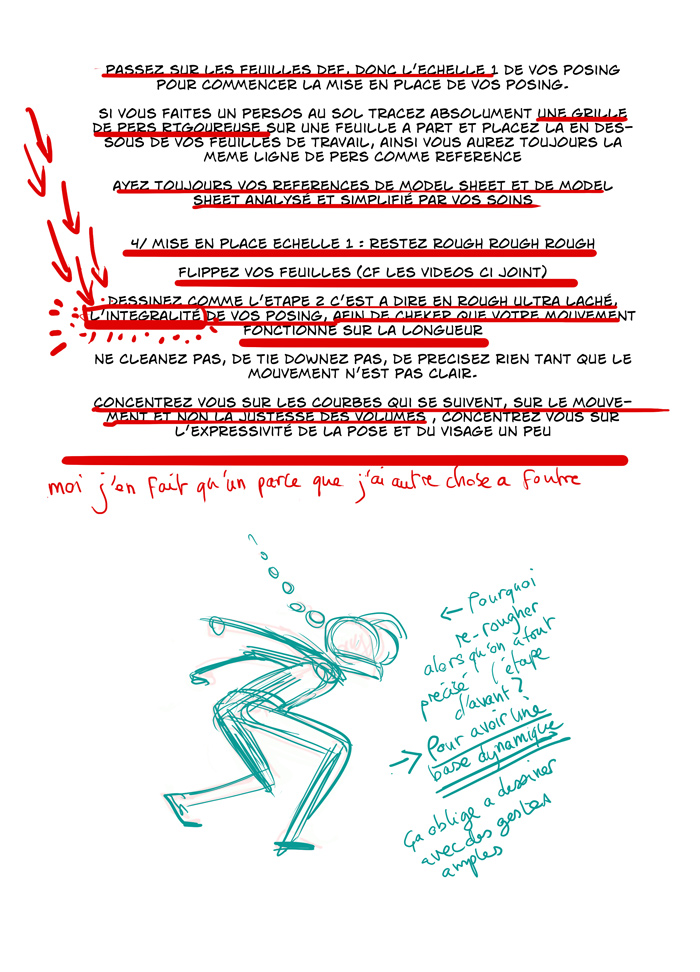 PASSEZ SUR LES FEUILLES DEF, DONC L'ECHELLE 1 DE VOS POSING
POUR COMMENCER LA MISE EN PLACE DE VOS POSING.
SI VOUS FAITES UN PERSOS AU SOL TRACEZ ABSOLUMENT UNE GRILLE
DE PERS RIGOUREUSE SUR UNE FEUILLE A PART ET PLACEZ LA EN DES-
SOUS DE VOS FEUILLES DE TRAVAIL, AINSI VOUS AUREZ TOUJOURS LA
MEME LIGNE DE PERS COMME REFERENCE
AYEZ TOUJOURS VOS REFERENCES DE MODEL SHEET ET DE MODEL
SHEET ANALYSÉ ET SIMPLIFIÉ PAR VOS SOINS
4/ MISE EN PLACE ECHELLE 1 : RESTEZ ROUGH ROUGH ROUGH
FLIPPEZ VOS FEUILLES (CF LES VIDEOS CI JOINT)
DESSINEZ COMME L'ETAPE 2 C'EST A DIRE EN ROUGH ULTRA LACHÉ,
L'INTEGRALITÉ DE VOS POSING, AFIN DE CHEKER QUE VOTRE MOUVEMENT
FONCTIONNE SUR LA LONGUEUR
NE CLEANEZ PAS, DE TIE DOWNEZ PAS, DE PRECISEZ RIEN TANT QUE LE
MOUVEMENT N'EST PAS CLAIR.
CONCENTREZ VOUS SUR LES COURBES QUI SE SUIVENT, SUR LE MOUVE-
MENT ET NON LA JUSTESSE DES VOLUMES , CONCENTREZ VOUS SUR
L'EXPRESSIVITÉ DE LA POSE ET DU VISAGE UN PEU
moi j'en fait qu'un parce que j'ai autre chose a foutre
Pourquoi
re-rougher
alors qu'on a tout
précisé l'étape
d'avant ?
Pour avoir une
base dynamique
Ça oblige a dessiner
avec des gestes
amples